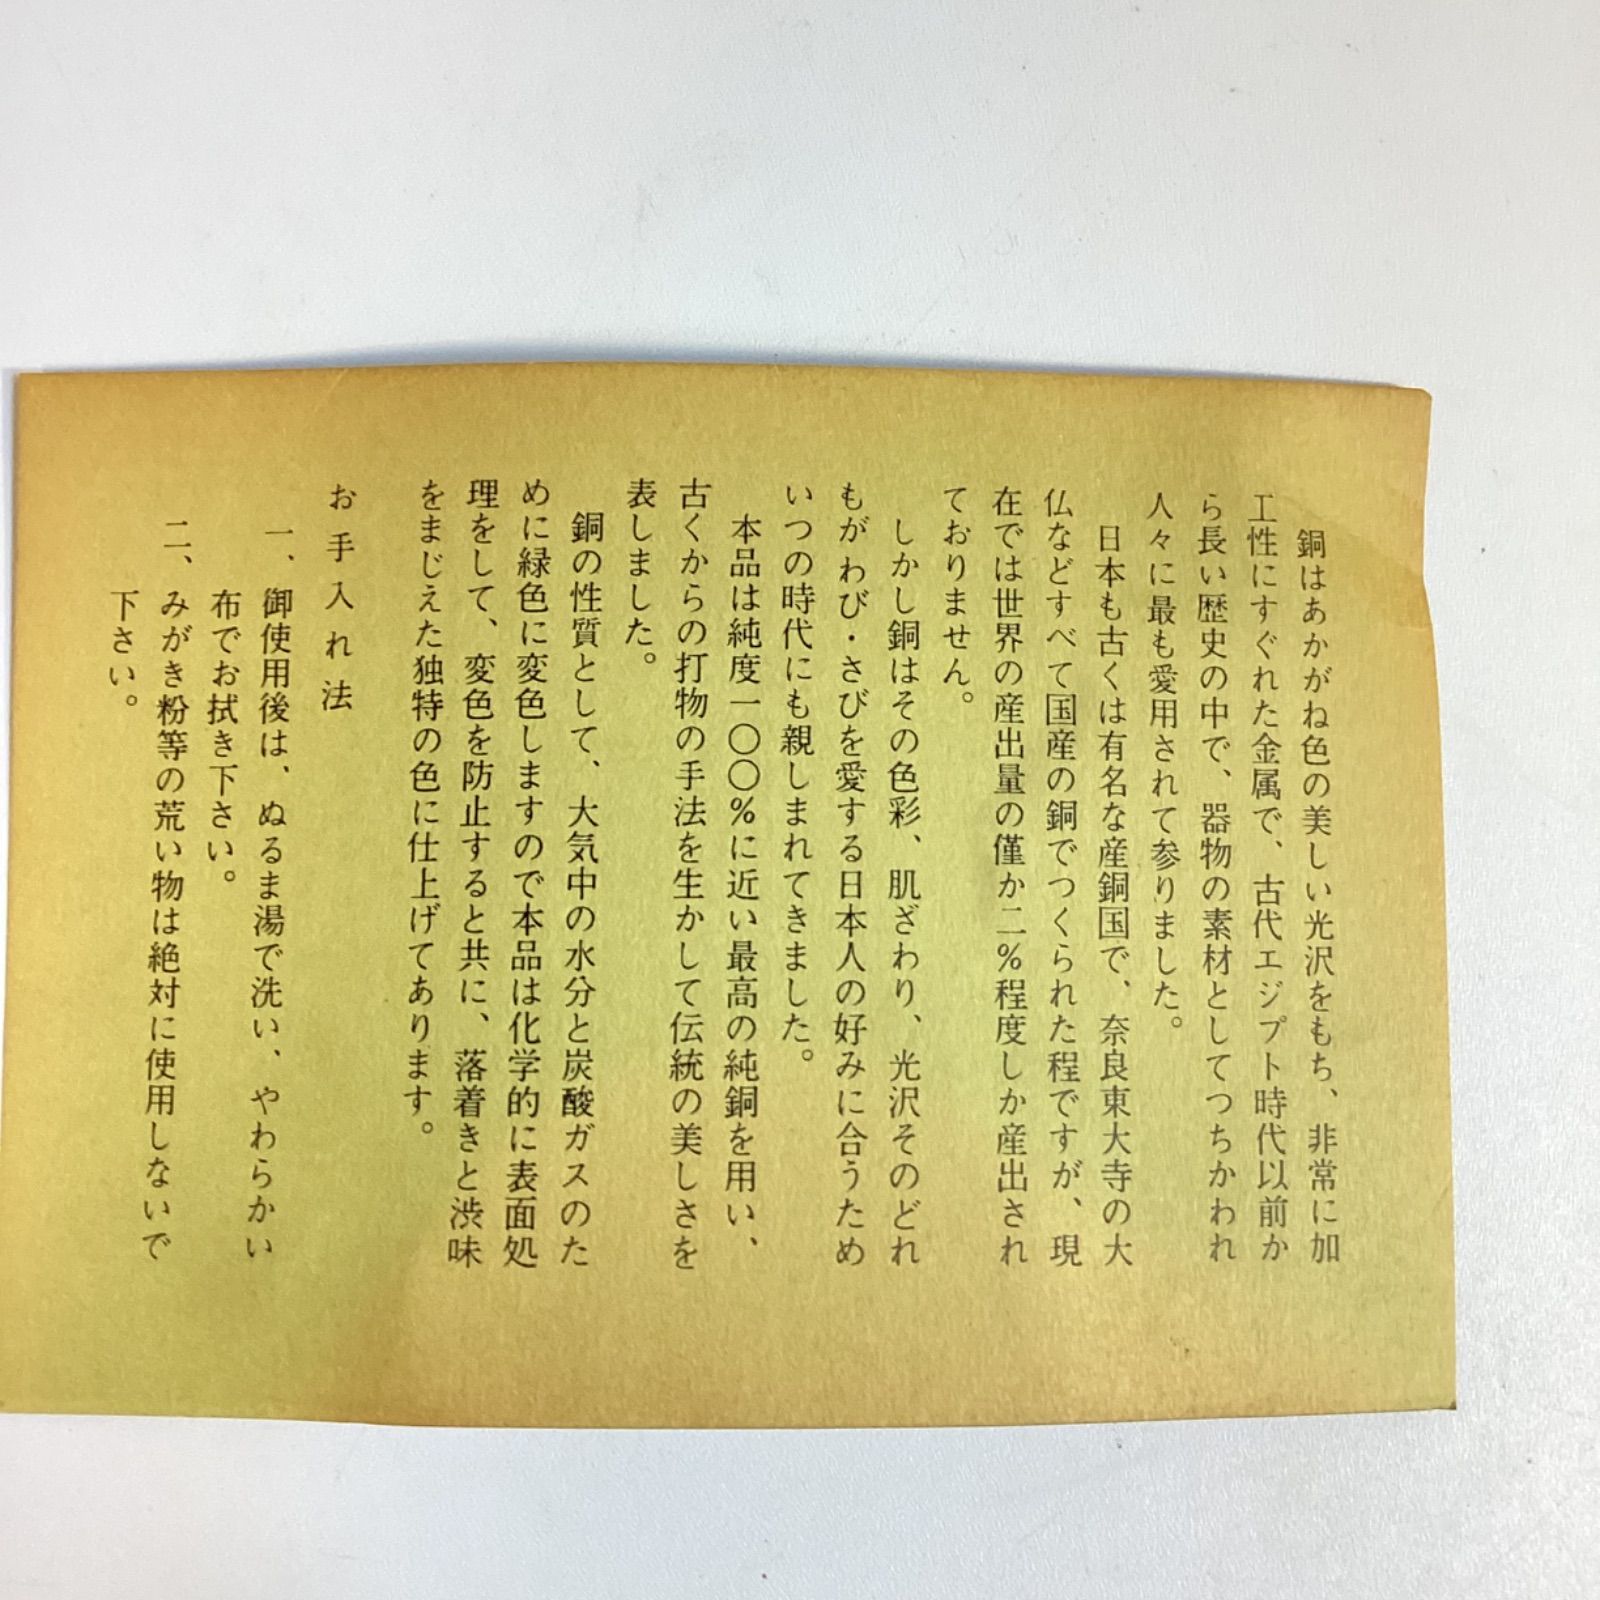 銅はあかがね色の美しい光沢をもち、非常に加
工性にすぐれた金属で、古代エジプト時代以前か
ら長い歴史の中で、器物の素材としてつちかわれ
人々に最も愛用されて参りました。
日本も古くは有名な産銅国で、奈良東大寺の大
仏などすべて国産の銅でつくられた程ですが、現
在では世界の産出量の僅か二%程度しか産出され
ておりません。
しかし銅はその色彩、肌ざわり、光沢そのどれ
もがわび・さびを愛する日本人の好みに合うため
いつの時代にも親しまれてきました。
本品は純度一〇〇%に近い最高の純銅を用い、
古くからの打物の手法を生かして伝統の美しさを
表しました。
銅の性質として、大気中の水分と炭酸ガスのた
めに緑色に変色しますので本品は化学的に表面処
理をして、変色を防止すると共に、落着きと渋味
をまじえた独特の色に仕上げてあります。
お手入れ法
一、御使用後は、ぬるま湯で洗い、やわらかい
布でお拭き下さい。
二、みがき粉等の荒い物は絶対に使用しないで
下さい。